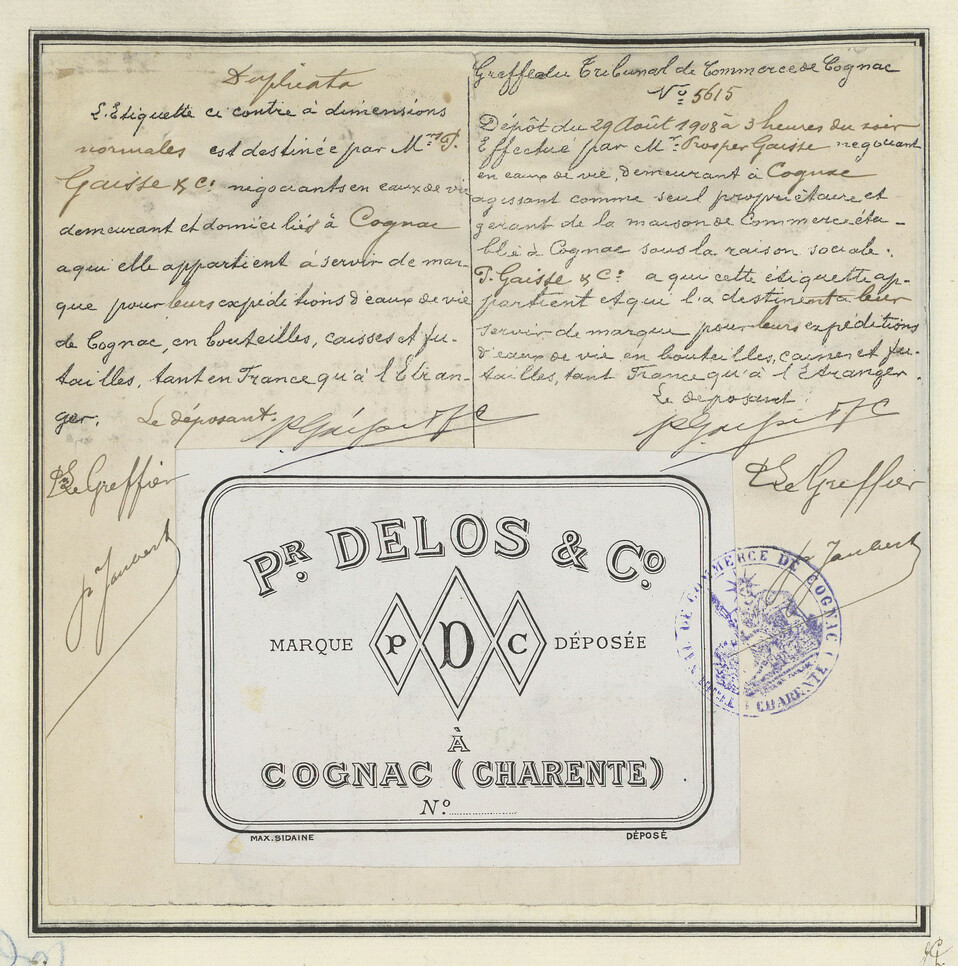 Duplicata
L'Etiquette ci contre à dimensions
normales est destinée par Mrs P.
Gaisse & Cie négociants en eaux de vie
demeurant et domiciliés à Cognac
a qui elle appartient à servir de mar-
que pour leurs expéditions d'eaux de vie
de Cognac, en bouteilles, caisses et fu-
tailles, tant en France qu'à l'Etran-
ger. Le déposant.
P Gaisse & C
Pr Le Greffier
Jaubert
Greffe du Tribunal de Commerce de Cognac
No 5615
Dépôt du 29 Août 1908 à 3 heures du soir
Effectué par Mr Prosper Gaisse négociant
en eaux de vie, demeurant à Cognac
agissant comme seul propriétaire et
gérant de la maison de Commerce éta-
blie à Cognac sous la raison sociale :
P. Gaisse & Cie a qui cette étiquette ap-
partient et qui l'a destinent a leur
servir de marque pour leurs expéditions
d'eaux de vie en bouteilles, caisses et fu-
tailles, tant France qu'à l'Etranger.
Le déposant
P Gaisse & C
Pr Le Greffier
Jaubert
PR. DELOS & Co.
MARQUE P D C DÉPOSÉE
À
COGNAC (CHARENTE)
No.
MAX. SIDAINE DÉPOSÉ
DE COMMERCE DE COGNAC
CHARENTE